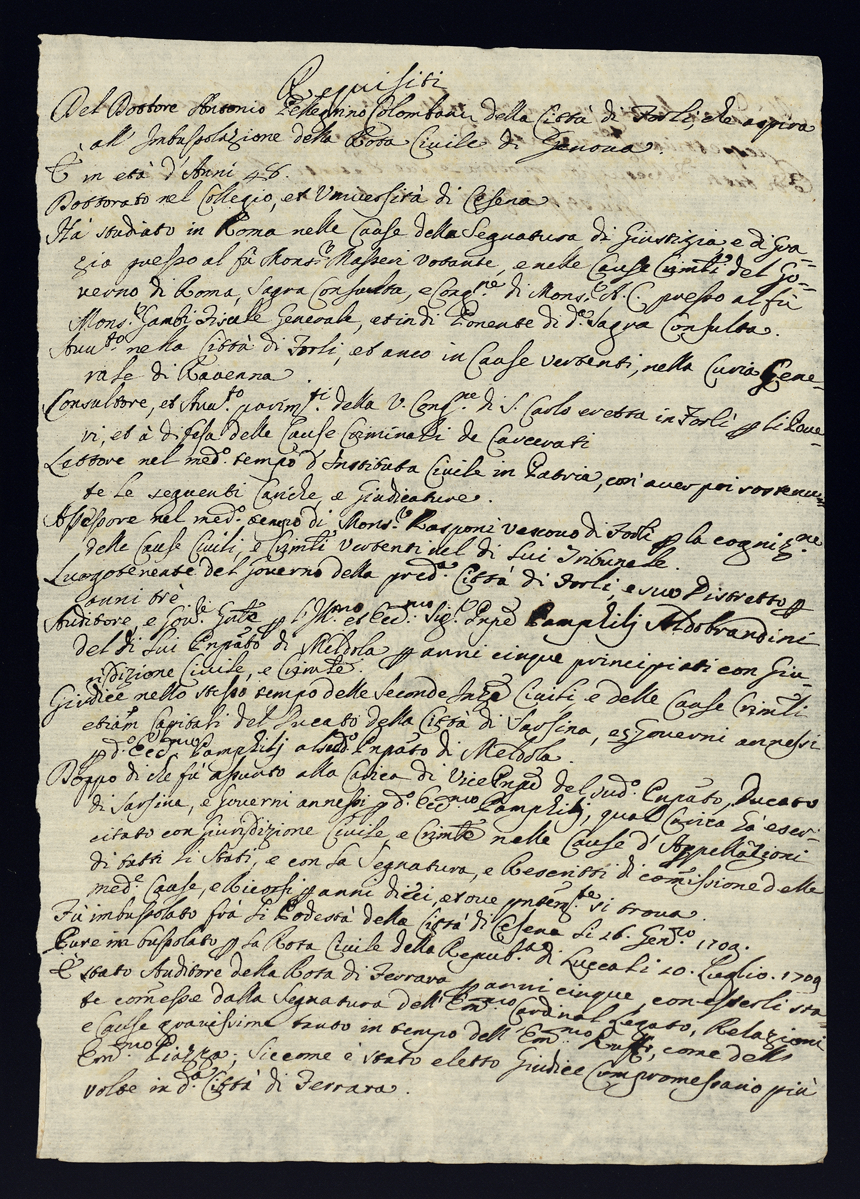 Requisiti
Del Dottore Antonio Pellegrino Colombani della Città di Forlì, che aspira
all' Imbussolazione della Rota Civile di Genova.
È in età d'Anni 48.
Dottorato nel Collegio, et Università di Cesena
Hà studiato in Roma nelle Cause della Segnatura di Giustizia, e di Gra=
zia presso al fù Mons.r Masseri Votante, e nelle Cause Crimli del Go=
verno di Roma, Sagra Consulta, e Cong.ne di Mons.r A. C. presso al fù
Mons.r Gambi Fiscale Generale, et indi Ponente di d.a Sagra Consulta.
Avv.to nella Città di Forlì, et anco in Cause vertenti, nella Curia Gene=
rale di Ravenna
Consultore, et Avv.to parim.ti della V. Cong.ne di S. Carlo eretta in Forlì p li Pove=
ri, et à difesa delle Cause Criminali de Carcerati
Lettore nel med.o tempo d'Instituta Civile in Patria, con aver poi sostenu=
te le seguenti Cariche, e Giudicature.
Assessore nel med.o tempo di Mons.r Rasponi Vescovo di Forlì p la cogniz.ne
delle Cause Civili, e Crimli vertenti nel di Lui Tribunale.
Luogotenente del Governo della pred.a Città di Forlì, e suo Distretto p
anni trè
Auditore, e Gov.re Gnle p l'Ill.mo et Ecc.mo Sig.r Pnpe Pamphilj Aldobrandini
del di Lui Pnpato di Meldola p anni cinque principiati con Giu=
risdizione Civile, e Crimle.
Giudice nello stesso tempo delle Seconde Istze Civili, e delle Cause Crimli
etiam Capitali del Ducato della Città di Sarsina, e Governi annessi
p d.o Ecc.mo Pamphilj al sud.o Pnpato di Meldola.
Doppo di che fù assunto alla Carica di Vice Pnpe del sud.o Pnpato, Ducato
di Sarsina, e Governi annessi p d.o Ecc.mo Pamphilj, qual Carica hà eser=
citato con Giurisdizione Civile, e Crimle nelle Cause d'Appellazioni
di tutti li Stati, e con la Segnatura, e Rescritti di comissione delle
med.e Cause, e Ricorsi p anni dieci, et ove pntem.te si trova.
Fù imbussolato frà li Podestà della Città di Cesena li 26. Gen.ro 1709.
Pure imbussolato p la Rota Civile della Repub.ca di Lucca li 20. Luglio. 1709
È stato Auditore della Rota di Ferrara p anni cinque, con esserli sta=
te comesse dalla Segnatura dell'Em.mo Cardinal Legato, Relazioni
e Cause gravissime tanto in tempo dell'Em.mo Ruffi, come dell'
Em.mo Piazza, siccome è stato eletto Giudice Compromessario più
volte in d.a Città di Ferrara.